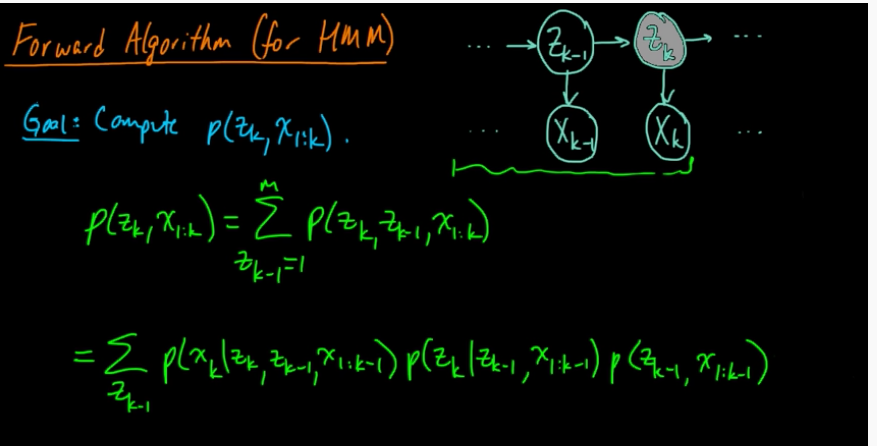 Forward Algorithm (for HMM)
... Z_{k-1} Z_k ...
Goal: Compute p(z_k, x_{1:k}).
... X_{k-1} X_k ...
p(z_k, x_{1:k}) = \sum_{z_{k-1}=1}^{m} p(z_k, z_{k-1}, x_{1:k})
= \sum_{z_{k-1}} p(x_k | z_k, z_{k-1}, x_{1:k-1}) p(z_k | z_{k-1}, x_{1:k-1}) p(z_{k-1}, x_{1:k-1})